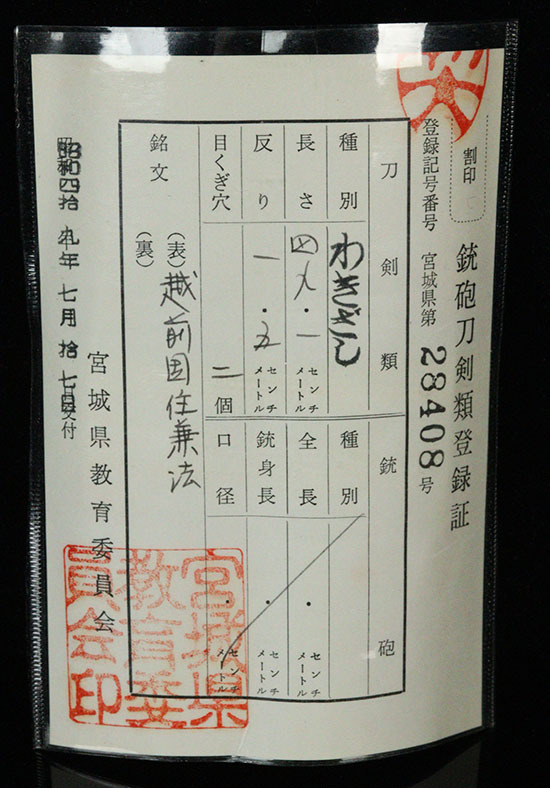 割印
銃砲刀剣類登録証
登録記号番号 宮城県第 28408 号
刀剣類
種別 わきざし
長さ 四九・一 センチメートル
反り 一・五 センチメートル
目くぎ穴 二個
銘文
(表) 越前国住兼法
(裏)
銃砲
種別
全長 ・ センチメートル
銃身長 ・ センチメートル
口径 ・ センチメートル
昭和四拾九年七月拾七日交付
宮城県教育委員会
宮城県教育委員会印